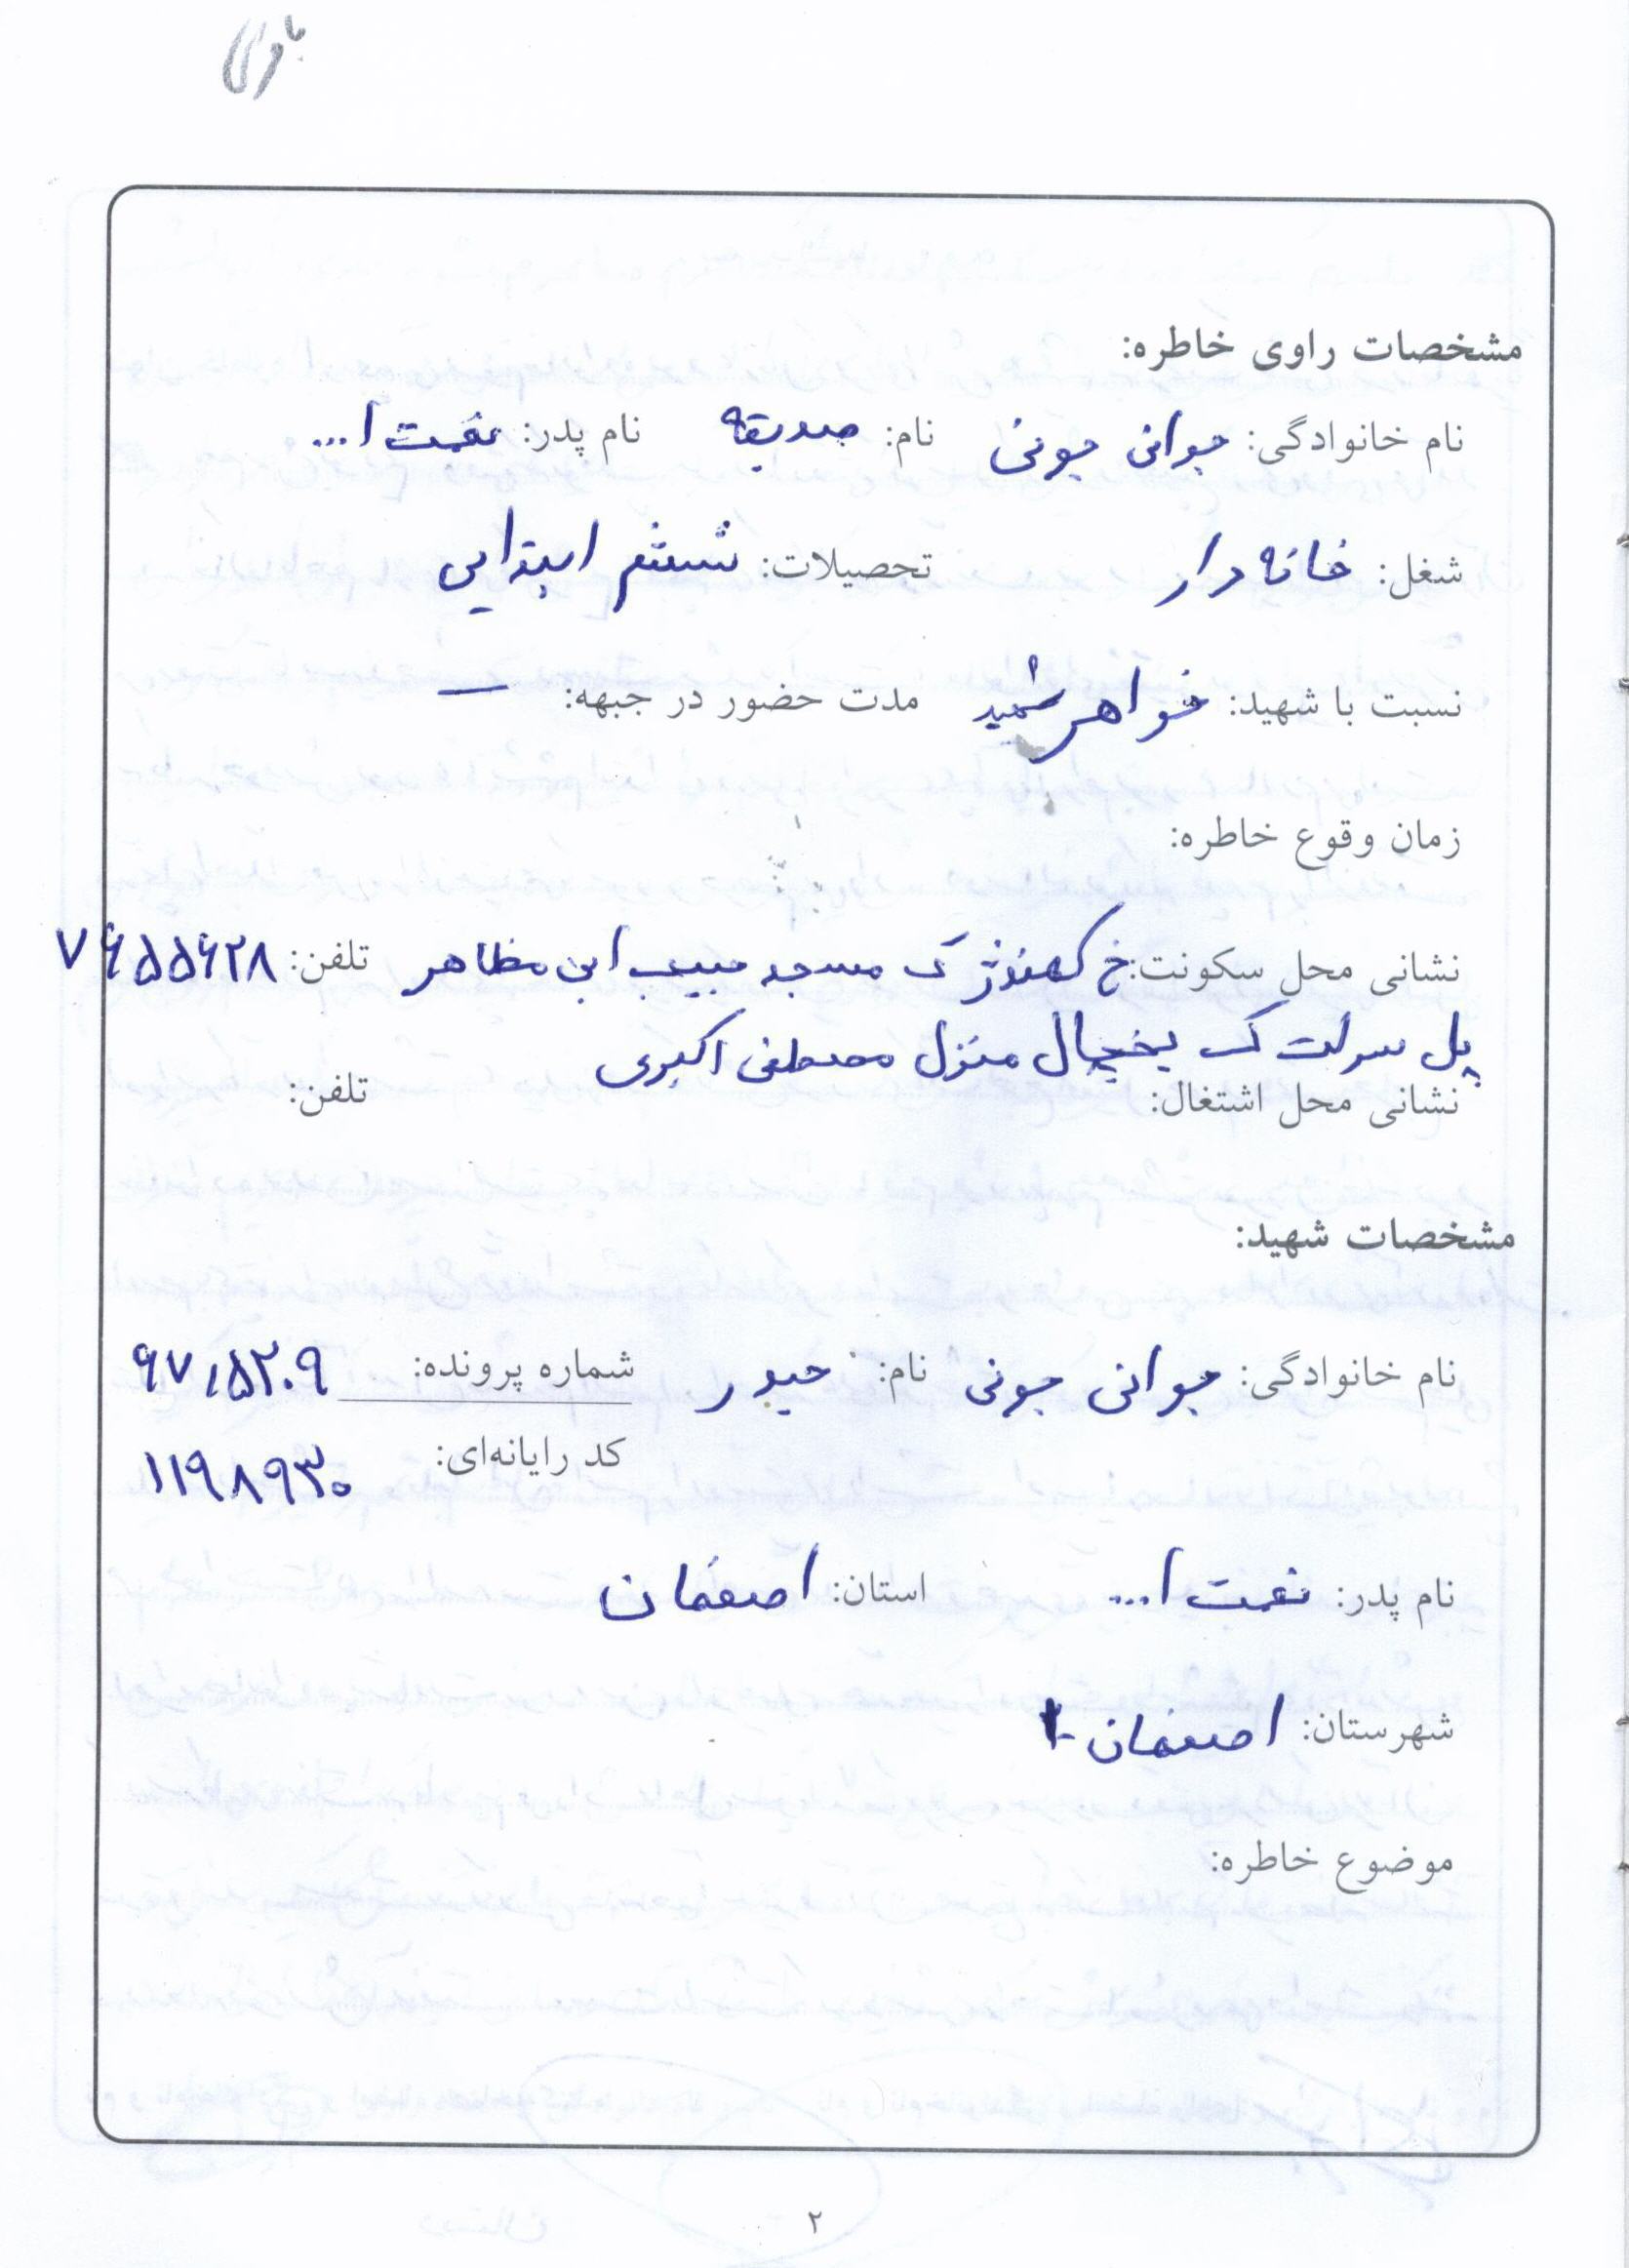 مشخصات راوی خاطره:
نام خانوادگی: جوانی جونی نام: صدیقه نام پدر: نعمت ا...
شغل: خانه دار تحصیلات: ششم ابتدایی
نسبت با شهید: خواهر شهید مدت حضور در جبهه: —
زمان وقوع خاطره:
نشانی محل سکونت: خ کهندژ ک مسجد حبیب ابن مظاهر تلفن: ۷۶۵۵۶۲۸
پل سرلت ک یخچال منزل مصطفی اکبری
نشانی محل اشتغال: تلفن:
مشخصات شهید:
نام خانوادگی: جوانی جونی نام: حیدر شماره پرونده: ۶۷/۵۲۰۹
کد رایانه‌ای: ۱۱۹۸۹۳۰
نام پدر: نعمت ا... استان: اصفهان
شهرستان: اصفهان -۲
موضوع خاطره:
۲